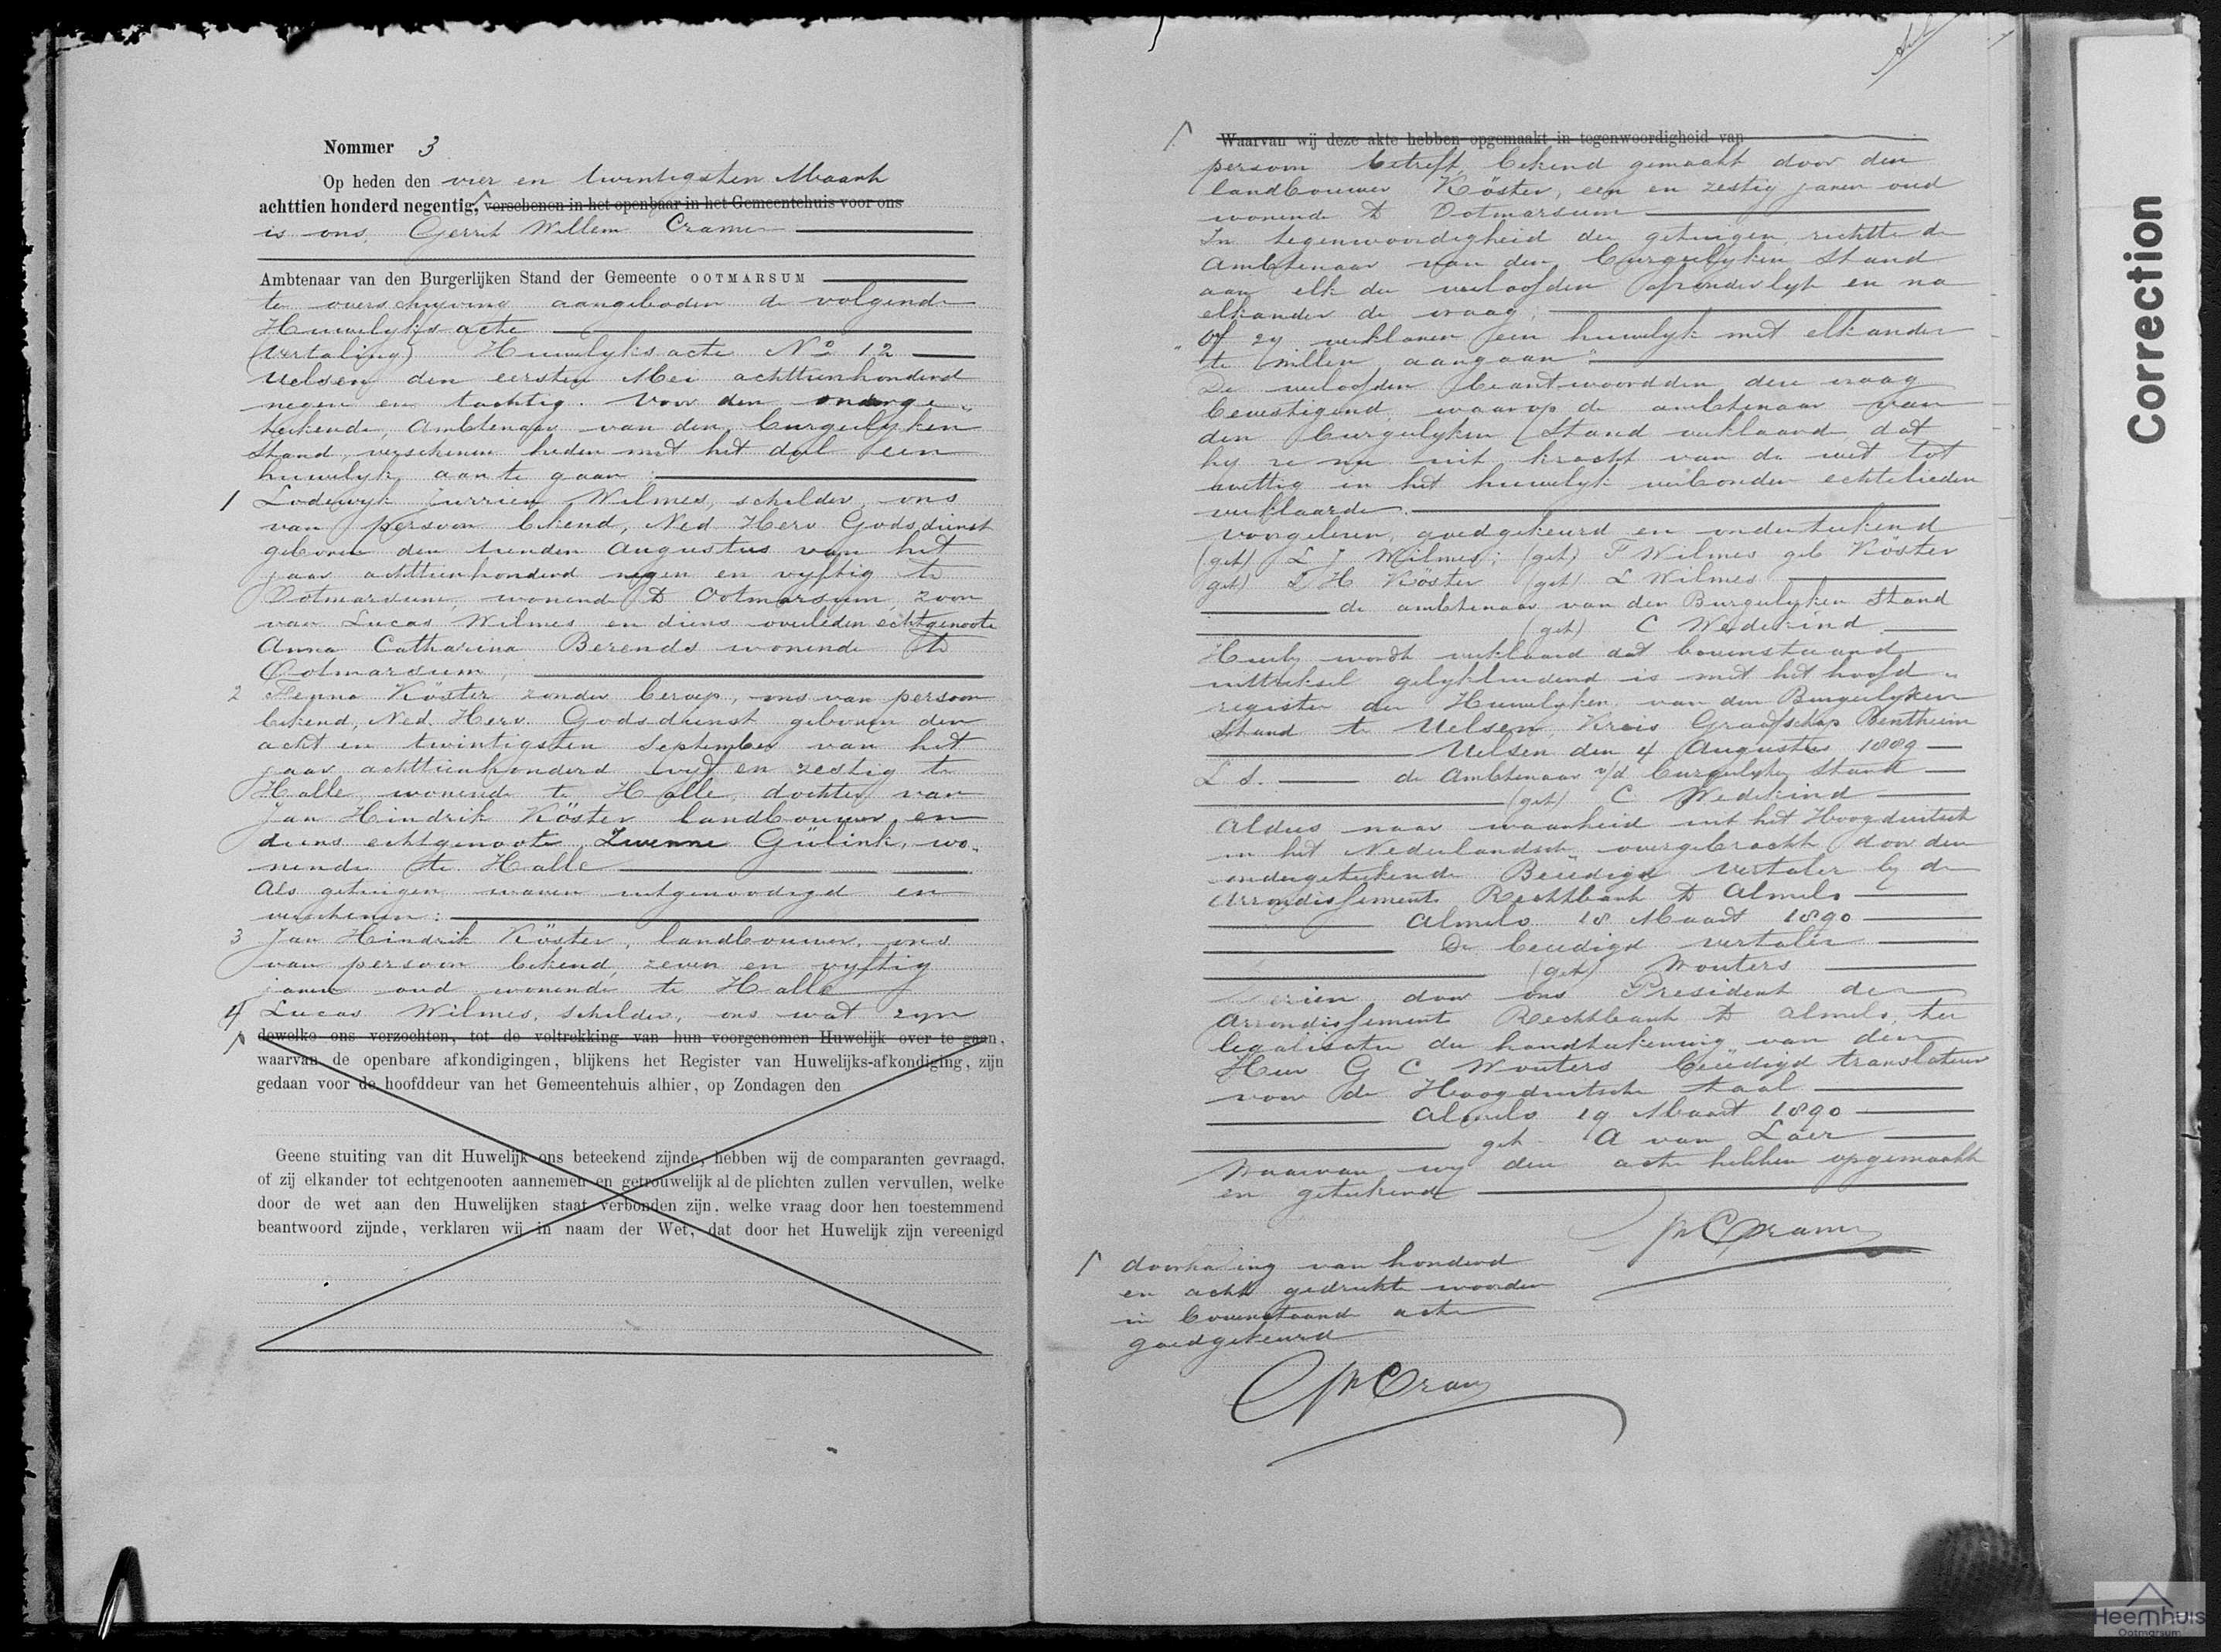 Nommer 3
Op heden den vier en twintigsten Maart
achttien honderd negentig, verschenen in het openbaar in het Gemeentehuis voor ons
is ons, Gerrit Willem Cramer
Ambtenaar van den Burgerlijken Stand der Gemeente OOTMARSUM
ter overschrijving aangeboden de volgende
Huwelijks acte
(Vertaling) Huwelyks acte No 12
Uelsen den eersten Mei achttienhonderd
negen en tachtig. Voor den onderge-
teekende, Ambtenaar van den burgerlyken
Stand, verschenen heden met het doel een
huwelyk aan te gaan:
1 Lodewyk Jurrien Wilmes, schilder, ons
van persoon bekend, Ned Herv Godsdienst
geboren den tienden Augustus van het
jaar achttienhonderd negen en vyftig te
Ootmarsum, wonende te Ootmarsum, zoon
van Lucas Wilmes en diens overleden echtgenoote
Anna Catharina Berends wonende te
Ootmarsum,
2 Fenna Köster zonder beroep, ons van persoon
bekend, Ned. Herv. Godsdienst geboren den
acht en twintigsten September van het
jaar achttienhonderd vyf en zestig te
Halle wonende te Halle, dochter van
Jan Hindrik Köster landbouwer en
diens echtgenoote, Zwenne Gülink, wo-
nende te Halle
Als getuigen waren uitgenoodigd en
verschenen:
3 Jan Hindrik Köster, landbouwer, ons
van persoon bekend, zeven en vyftig
jaren oud wonende te Halle
4 Lucas Wilmes, schilder, ons wat zyn
dewelke ons verzochten, tot de voltrekking van hun voorgenomen Huwelijk over te gaan,
waarvan de openbare afkondigingen, blijkens het Register van Huwelijks-afkondiging, zijn
gedaan voor de hoofddeur van het Gemeentehuis alhier, op Zondagen den
Geene stuiting van dit Huwelijk ons beteekend zijnde, hebben wij de comparanten gevraagd,
of zij elkander tot echtgenooten aannemen en getrouwelijk al de plichten zullen vervullen, welke
door de wet aan den Huwelijken staat verbonden zijn, welke vraag door hen toestemmend
beantwoord zijnde, verklaren wij in naam der Wet, dat door het Huwelijk zijn vereenigd
Waarvan wij deze akte hebben opgemaakt in tegenwoordigheid van
persoon betreft, bekend gemaakt door den
landbouwer Köster, een en zestig jaren oud
wonende te Ootmarsum
In tegenwoordigheid der getuigen, richtte de
Ambtenaar van den burgerlyken Stand
aan elk der verloofden afzonderlyk en na
elkander de vraag,
"Of zy verklaren een huwelyk met elkander
te willen aangaan"
De verloofden beantwoordden deze vraag
bevestigend, waarop de ambtenaar van
den burgerlyken Stand verklaarde, dat
hy ze nu uit kracht van de wet tot
wettig in het huwelyk verbonden echtelieden
verklaarde.
Voorgelezen, goedgekeurd en onderteekend
(get) L J Wilmes; (get) F Wilmes geb Köster
(get) J H Köster (get) L Wilmes
de ambtenaar van den Burgerlyken Stand
(get) C Wedekind
Hierby wordt verklaard dat bovenstaand
uittreksel gelykluidend is met het hoofd-
register der Huwelyken van den Burgerlyken
Stand te Uelsen, Kreis Graafschap Bentheim
Uelsen den 4 Augustus 1889
L S. de Ambtenaar v/d burgerlyke Stand
(get) C Wedekind
Aldus naar waarheid uit het Hoogduitsch
in het Nederlandsch overgebracht door den
ondergeteekende Beëdigd Vertaler by de
Arrondissements Rechtbank te Almelo
Almelo 18 Maart 1890
De beëdigd vertaler
(get) Wouters
Gezien door ons President der
Arrondissements Rechtbank te Almelo, ter
legalisatie der handteekening van den
Heer G C Wouters beëdigd translateur
voor de Hoogduitsche taal
Almelo 19 Maart 1890
get. A van Laer
Waarvan wy deze acte hebben opgemaakt
en geteekend
GW Cramer
doorhaling van honderd
en acht gedrukte woorden
in bovenstaande acte
goedgekeurd
GW Cramer
Correction
Heemhuis
Ootmarsum